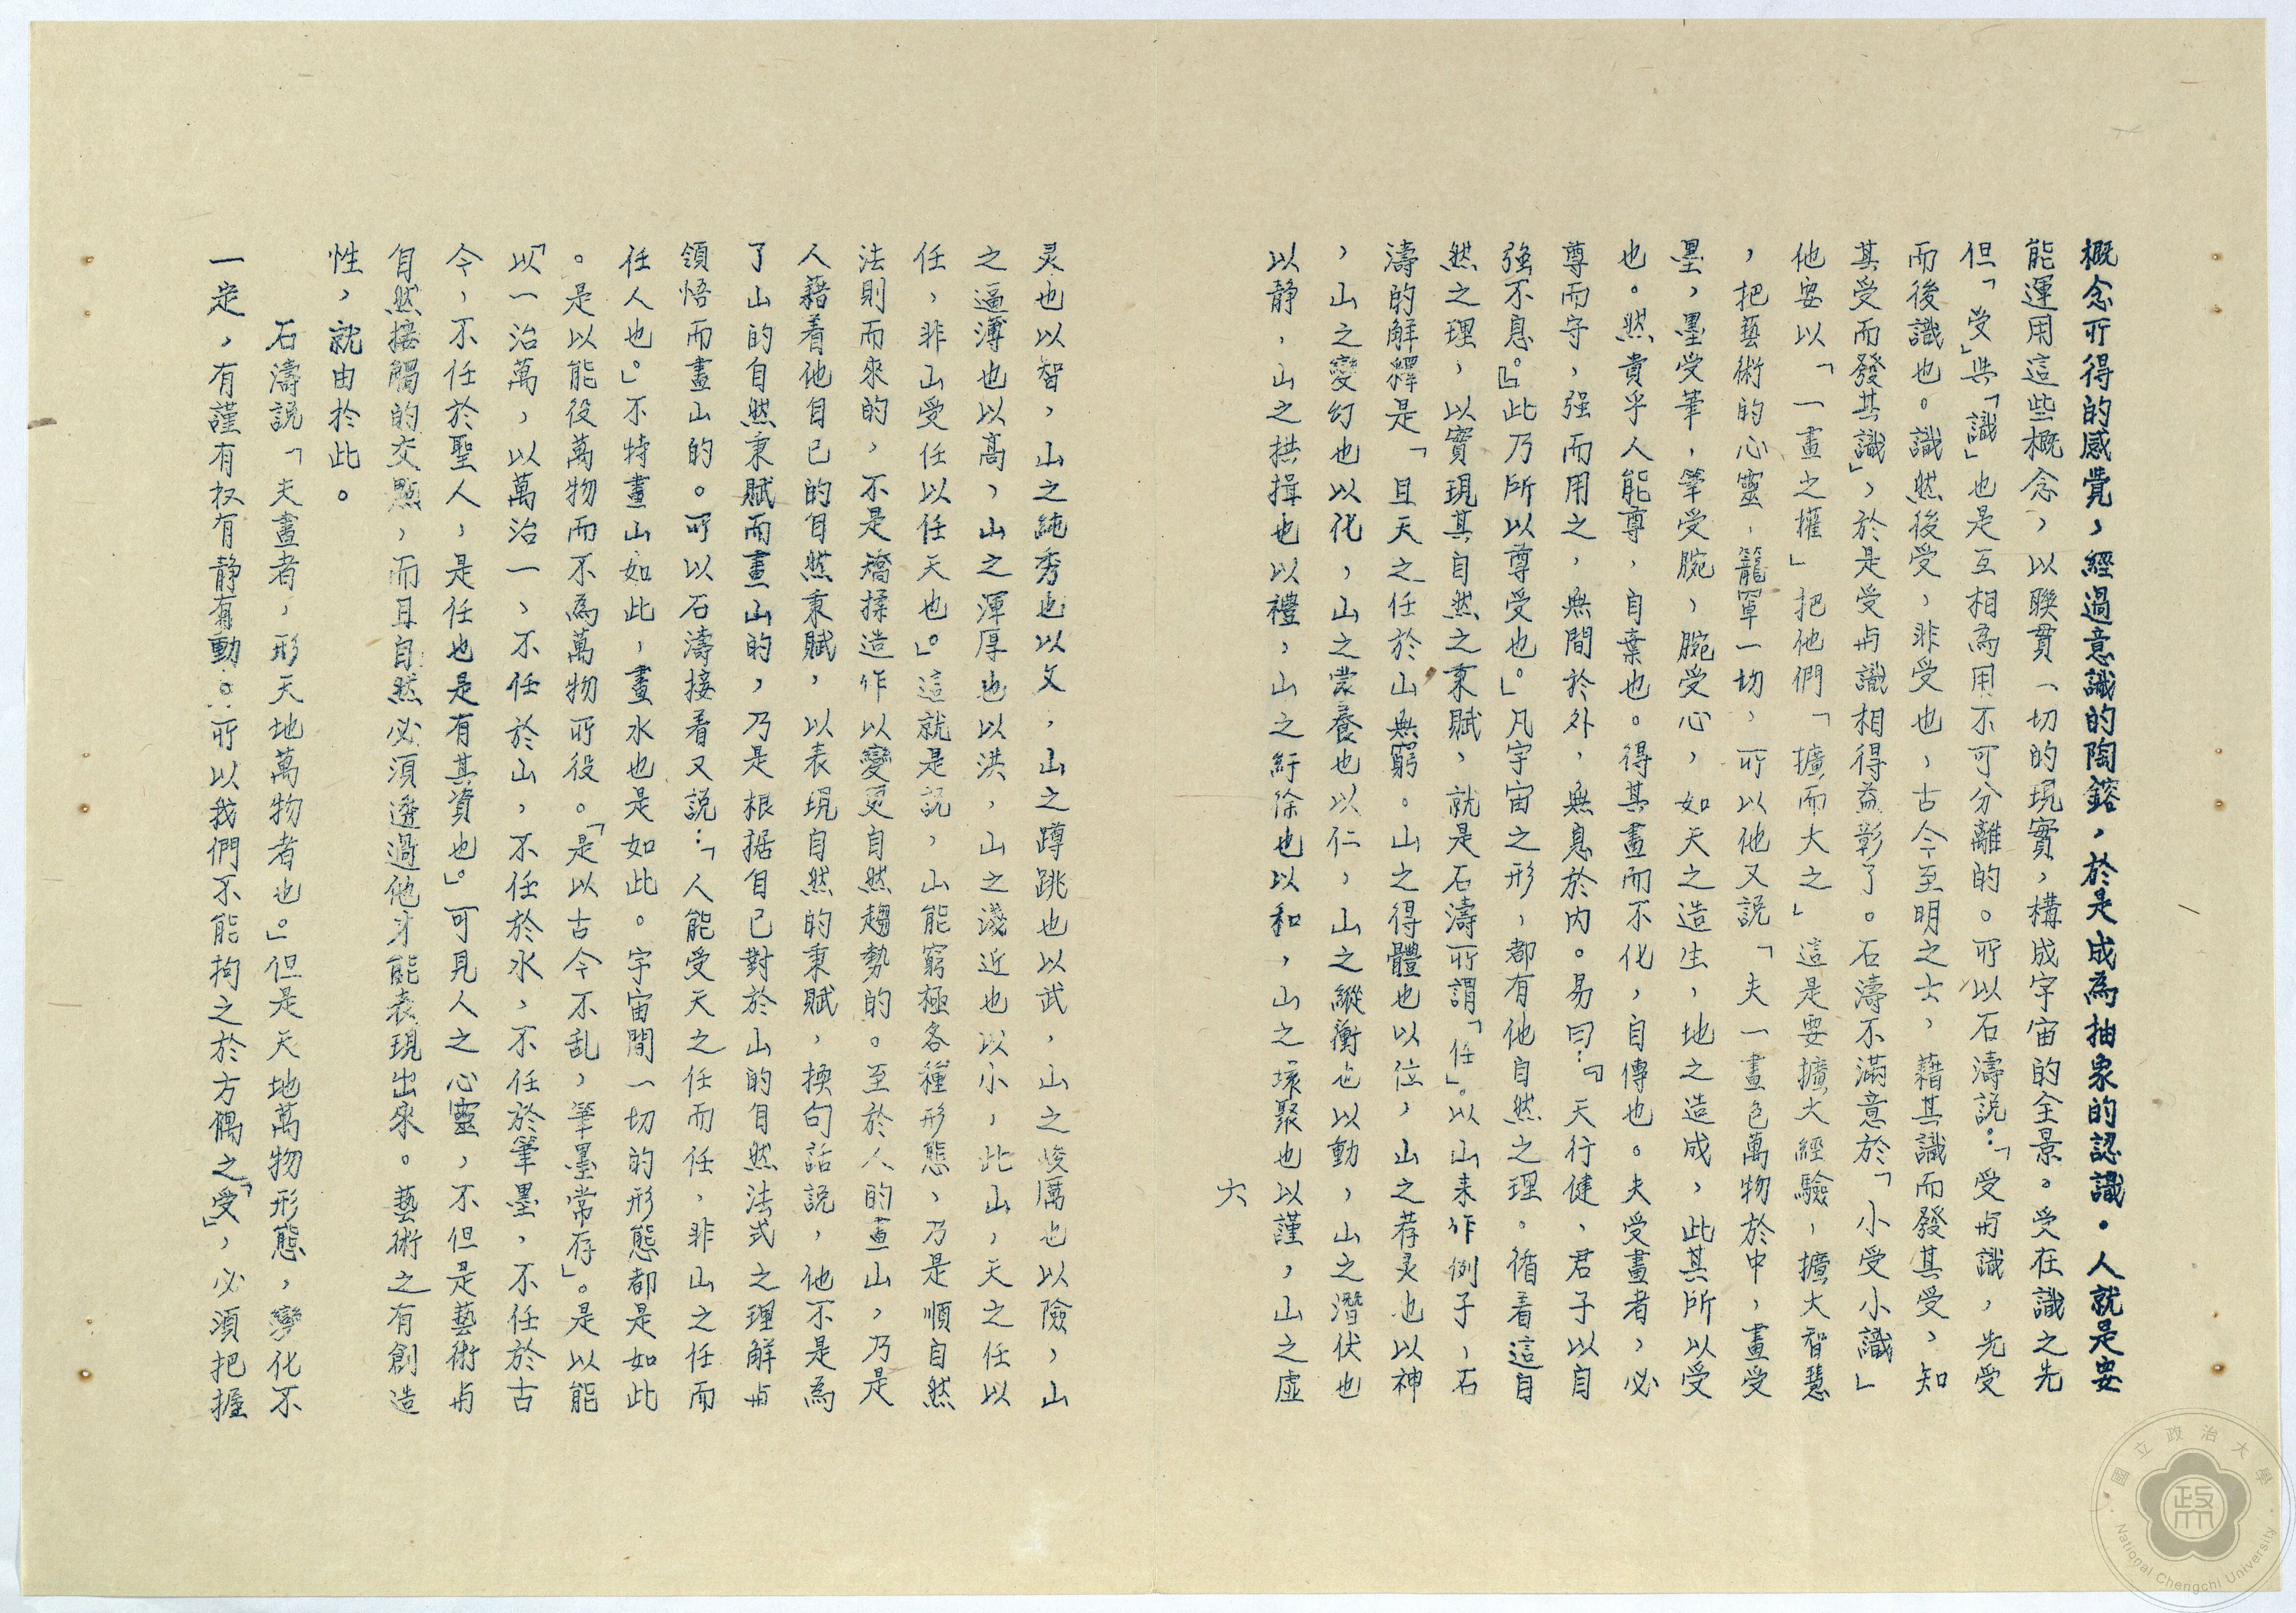 概念所得的感覺，經過意識的陶鎔，於是成為抽象的認識。人就是要
能運用這些概念，以聯貫一切的現實，構成宇宙的全景。受在識之先
但「受」與「識」也是互相為用不可分離的。所以石濤説：「受与識，先受
而後識也。識然後受，非受也，古今至明之士，藉其識而發其受，知
其受而發其識」，於是受与識相得益彰了。石濤不滿意於「小受小識」
他要以「一畫之擢」把他們「擴而大之」這是要擴大經驗，擴大智慧
，把藝術的心靈，籠罩一切，所以他又説「夫一畫包萬物於中，畫受
墨，墨受筆，筆受腕，腕受心，如天之造生，地之造成，此其所以受
也。然貴乎人能尊，自棄也。得其畫而不化，自傳也。夫受畫者，必
尊而守，强而用之，無間於外，無息於内。易曰：『天行健，君子以自
強不息。』此乃所以尊受也。」凡宇宙之形，都有他自然之理。循着這自
然之理，以實現其自然之秉賦，就是石濤所謂「任」。以山来作例子，石
濤的解釋是「且天之任於山無窮。山之得體也以位，山之荐灵也以神
，山之變幻也以化，山之蒙養也以仁，山之縱衡也以動，山之潛伏也
以静，山之拱揖也以禮，山之紆徐也以和，山之環聚也以謹，山之虛
六
灵也以智，山之純秀也以文，山之蹲跳也以武，山之峻厲也以險，山
之逼薄也以高，山之渾厚也以洪，山之淺近也以小，此山，天之任以
任，非山受任以任天也。」這就是説，山能窮極各種形態，乃是順自然
法則而來的，不是矯揉造作以變更自然趨勢的。至於人的畫山，乃是
人藉着他自己的自然秉賦，以表現自然的秉賦，換句話説，他不是為
了山的自然秉賦而畫山的，乃是根据自己對於山的自然法式之理解与
領悟而畫山的。所以石濤接着又説：「人能受天之任而任，非山之任而
任人也。」不特畫山如此，畫水也是如此。宇宙間一切的形態都是如此
。是以能役萬物而不為萬物所役。「是以古今不乱，筆墨常存」。是以能
「以一治萬，以萬治一，不任於山，不任於水，不任於筆墨，不任於古
今，不任於聖人，是任也是有其資也」。可見人之心靈，不但是藝術与
自然接觸的交點，而且自然必須透過他才能表現出來。藝術之有創造
性，就由於此。
石濤説「夫畫者，形天地萬物者也。」但是天地萬物形態，變化不
一定，有謹有权有静有動。所以我們不能拘之於方偶之「受」，必須把握
國立政治大學
National Chengchi University
政